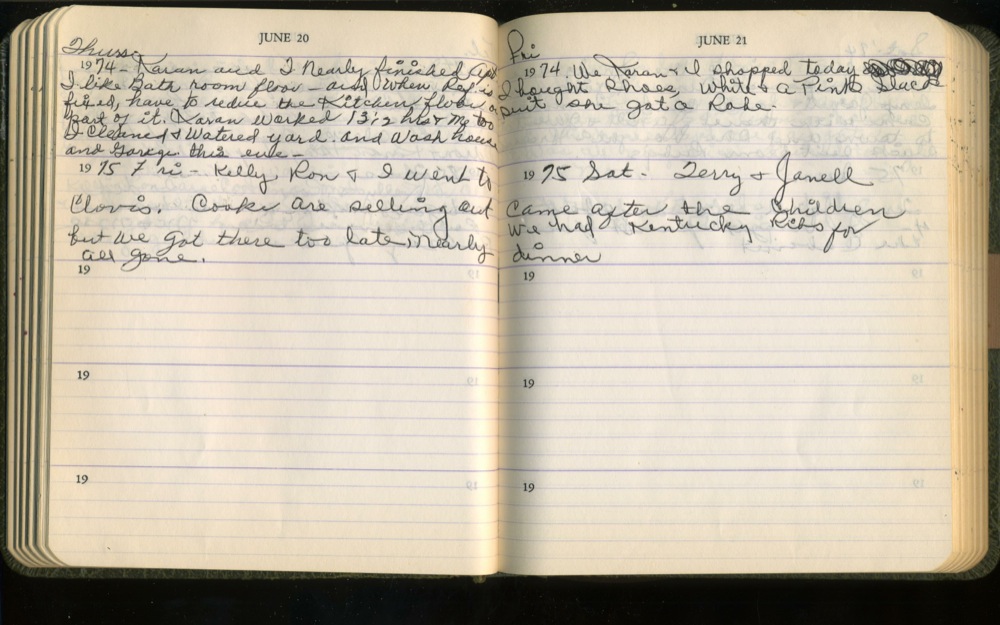 JUNE 20
Thurs.
1974 - Karan and I Nearly finished apt
I like Bath room floor - and When Ref is
fixed, have to redue the Kitchen floor or
part of it. Karan Worked 13 1/2 hrs & Me too
I Cleaned & Watered yard. and Wash house
and Garage this eve -
1975 Fri - Kelly Ron & I went to
Clovis. Cooks are selling out
but we got there too late, Nearly
all gone.
19
19
19
JUNE 21
Fri
1974. We Karan & I shopped today
I bought Shoes, White & a Pink Slack
suit she got a Robe.
1975 Sat - Terry & Janell
Came after the Children
We had Kentucky Ribs for
dinner
19
19
19